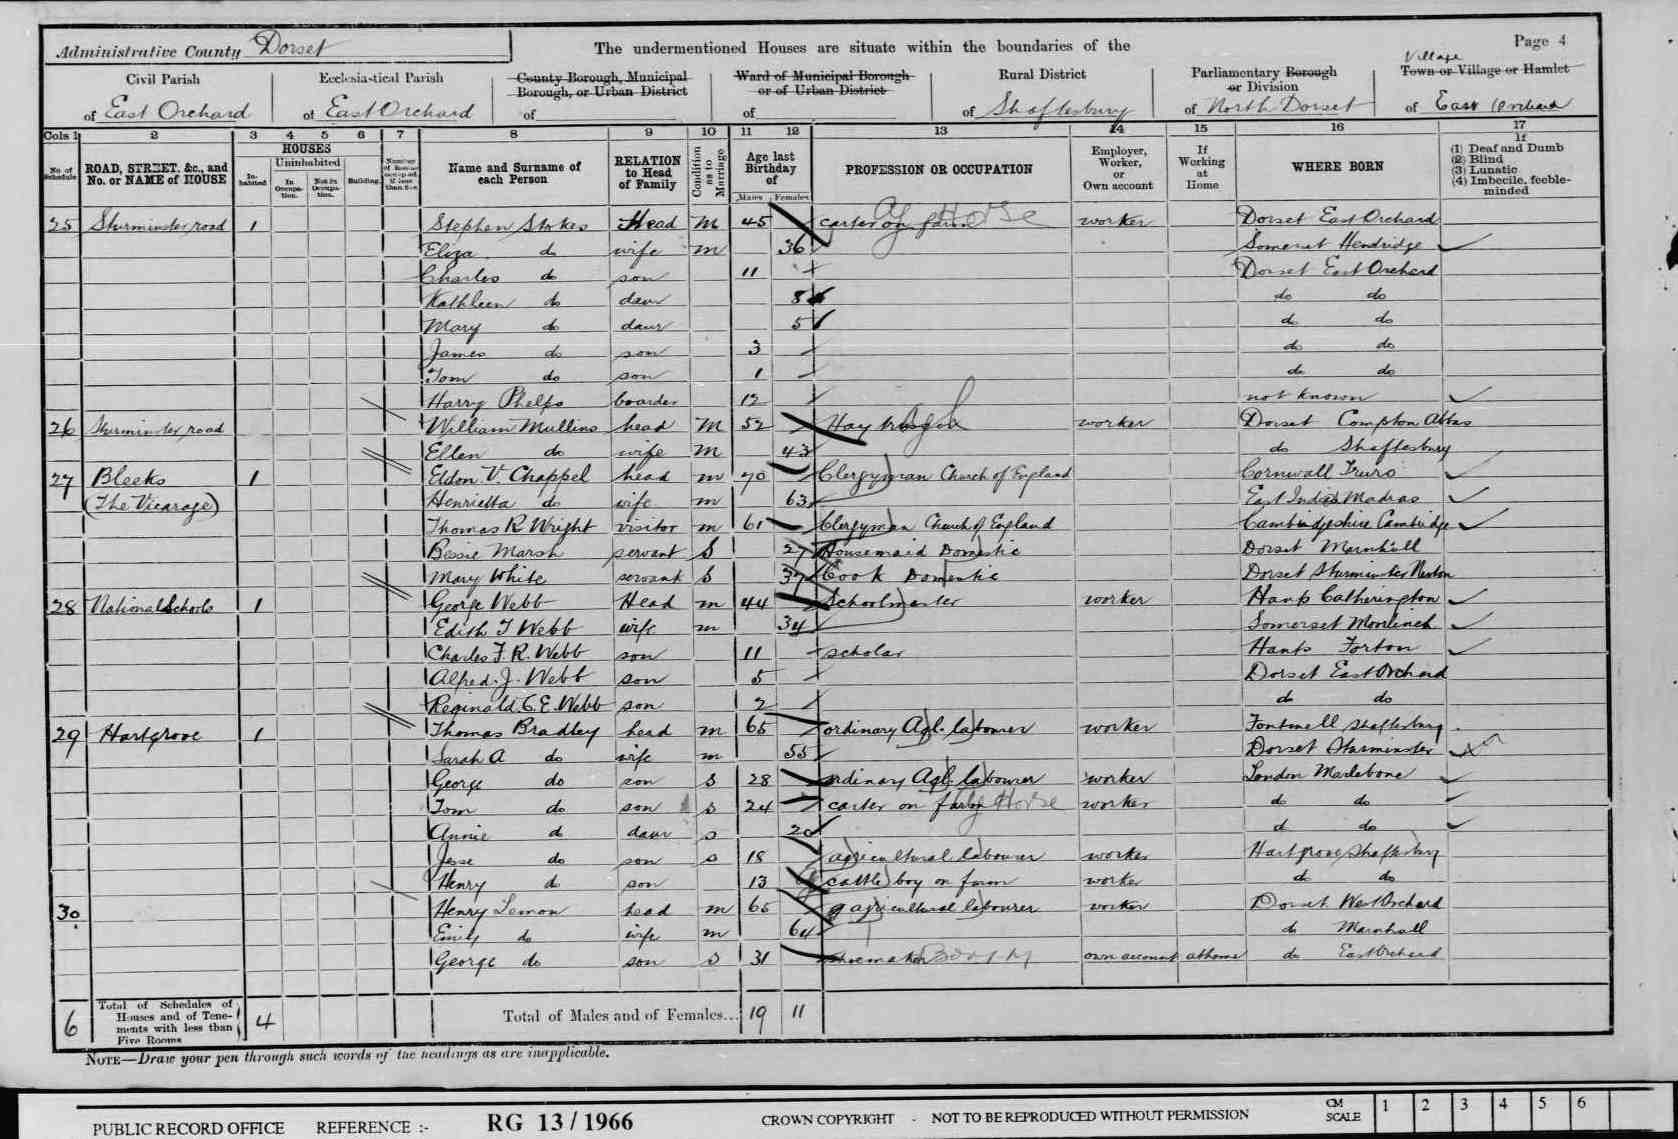 Administrative County Dorset
The undermentioned Houses are situate within the boundaries of the
Page 4
Civil Parish of East Orchard
Ecclesiastical Parish of East Orchard
County Borough, Municipal Borough, or Urban District of
Ward of Municipal Borough or of Urban District of
Rural District of Shaftesbury
Parliamentary Borough or Division of North Dorset
Village Town or Village or Hamlet of East Orchard
Cols 1 2 3 4 5 6 7 8 9 10 11 12 13 14 15 16 17
No. of Schedule
ROAD, STREET, &c., and No. or NAME of HOUSE
HOUSES
Inhabited
Uninhabited
In Occupation.
Not in Occupation.
Building.
Number of Rooms occupied if less than five
Name and Surname of each Person
RELATION to Head of Family
Condition as to Marriage
Age last Birthday of
Males Females
PROFESSION OR OCCUPATION
Employer, Worker, or Own account
If Working at Home
WHERE BORN
If (1) Deaf and Dumb (2) Blind (3) Lunatic (4) Imbecile, feeble-minded
25 Sturminster road 1 Stephen Stokes Head M 45 carter on farm Horse worker Dorset East Orchard
Eliza do wife m 36 Somerset Hendridge
Charles do son 11 Dorset East Orchard
Kathleen do daur 8 do do
Mary do daur 5 do do
James do son 3 do do
Tom do son 1 do do
Harry Phelps boarder 12 not known
26 Sturminster road William Mullins head M 52 Hay worker Dorset Compton Abbas
Ellen do wife m 43 do Shaftesbury
27 Bleeks 1 Eldon V. Chappel head m 70 Clergyman Church of England Cornwall Truro
(The Vicarage) Henrietta do wife m 63 East Indies Madras
Thomas R Wright visitor m 61 Clergyman Church of England Cambridgeshire Cambridge
Bessie Marsh servant S 27 Housemaid Domestic Dorset Marnhull
Mary White servant S 37 Cook Domestic Dorset Sturminster Newton
28 National Schools 1 George Webb Head m 44 Schoolmaster worker Hants Catherington
Edith J Webb wife m 34 Somerset Moorlinch
Charles F. R. Webb son 11 scholar Hants Forton
Alfred. J. Webb son 5 Dorset East Orchard
Reginald C. E. Webb son 2 do do
29 Hartgrove 1 Thomas Bradley head m 65 ordinary Agl. labourer worker Fontmell Shaftesbury
Sarah A do wife m 55 Dorset Sturminster
George do son S 28 ordinary Agl. labourer worker London Marlebone
Tom do son S 24 carter on farm Horse worker do do
Annie do daur S 20 do do
Jesse do son S 18 agricultural labourer worker Hartgrove Shaftesbury
Henry do son 13 cattle boy on farm worker do do
30 Henry Lemon head m 65 agricultural labourer worker Dorset West Orchard
Emily do wife m 64 do Marnhull
George do son S 31 shoemaker own account at home do East Orchard
6 Total of Schedules of Houses and of Tenements with less than Five Rooms 4 Total of Males and of Females... 19 11
NOTE—Draw your pen through such words of the headings as are inapplicable.
PUBLIC RECORD OFFICE REFERENCE :- RG 13/1966 CROWN COPYRIGHT - NOT TO BE REPRODUCED WITHOUT PERMISSION
CM SCALE 1 2 3 4 5 6